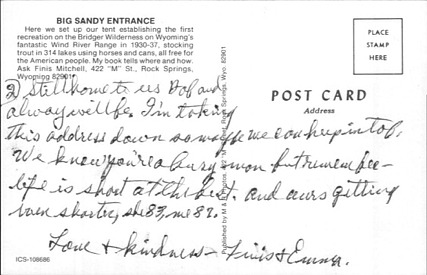 BIG SANDY ENTRANCE
Here we set up our tent establishing the first
recreation on the Bridger Wilderness on Wyoming's
fantastic Wind River Range in 1930-37, stocking
trout in 314 lakes using horses and cans, all free for
the American people. My book tells where and how.
Ask Finis Mitchell, 422 "M" St., Rock Springs,
Wyoming 82901
PLACE
STAMP
HERE
POST CARD
Address
2) still home to us and
always will be. I'm taking
this address down so maybe we can keep in
We know you're a busy man but remember
life is short at the best. and ours getting
shorter, she 83, me 87.
Love & kindness - Finis & Emma.
Published by M &
Springs, Wyo. 82901
ICS-108686